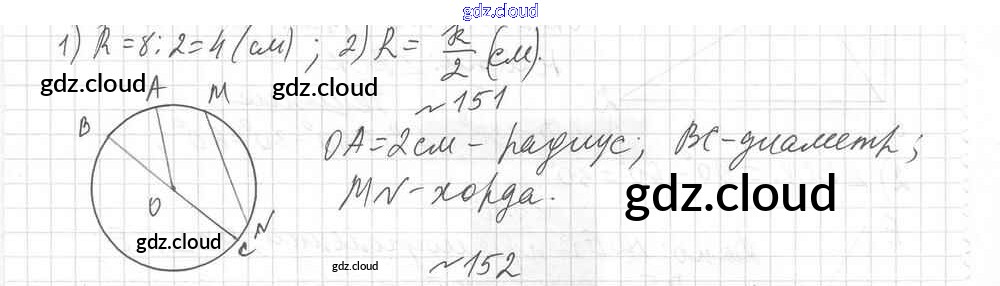 gdz.cloud
1) R = 8 : 2 = 4 (см) ; 2) R = k/2 (см).
gdz.cloud
gdz.cloud
A M
~ 151
B
OA = 2 см - радиус; BC - диаметр;
MN - хорда.
gdz.cloud
O
N
C
gdz.cloud
gdz.cloud
~ 152